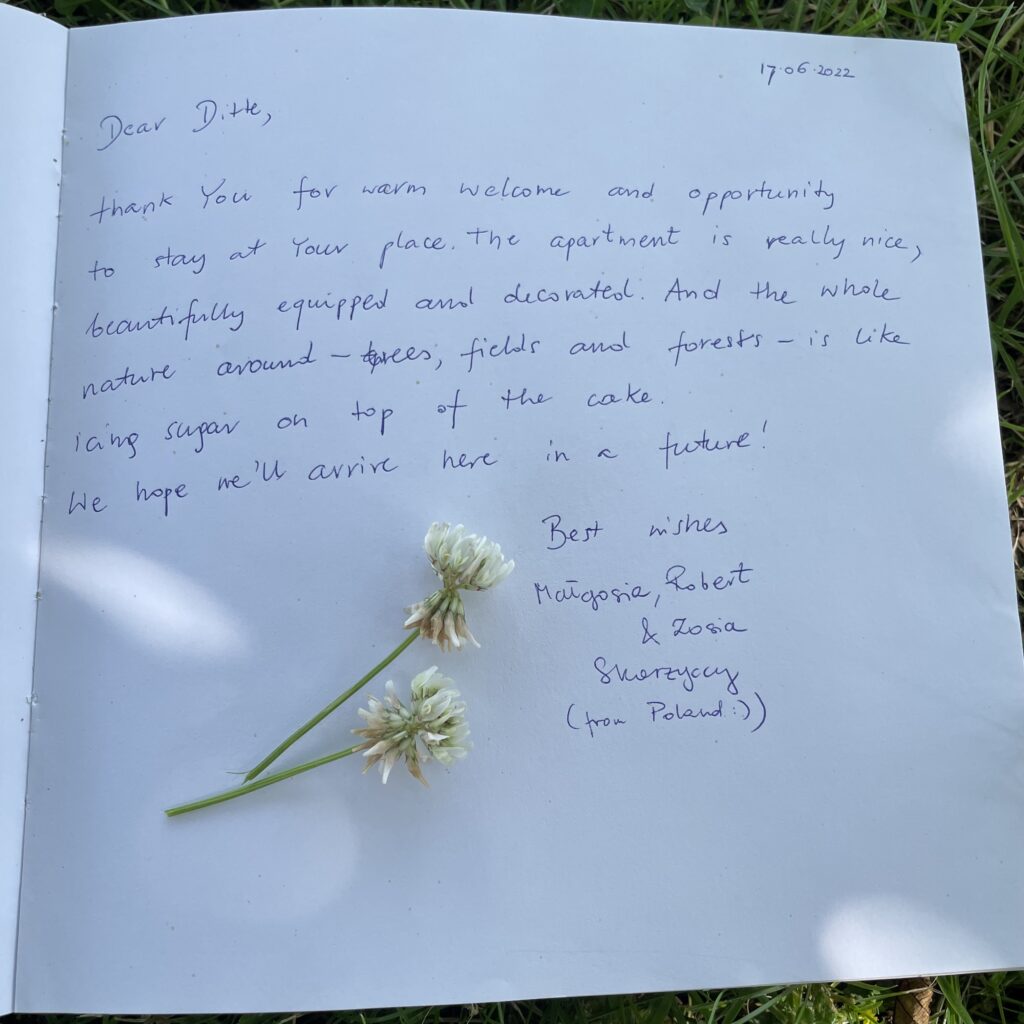 17.06.2022
Dear Ditte,
thank You for warm welcome and opportunity
to stay at Your place. The apartment is really nice,
beautifully equipped and decorated. And the whole
nature around – trees, fields and forests – is like
icing sugar on top of the cake.
We hope we'll arrive here in a future!
Best wishes
Małgosia, Robert
& Zosia
Skarzyccy
(from Poland :))